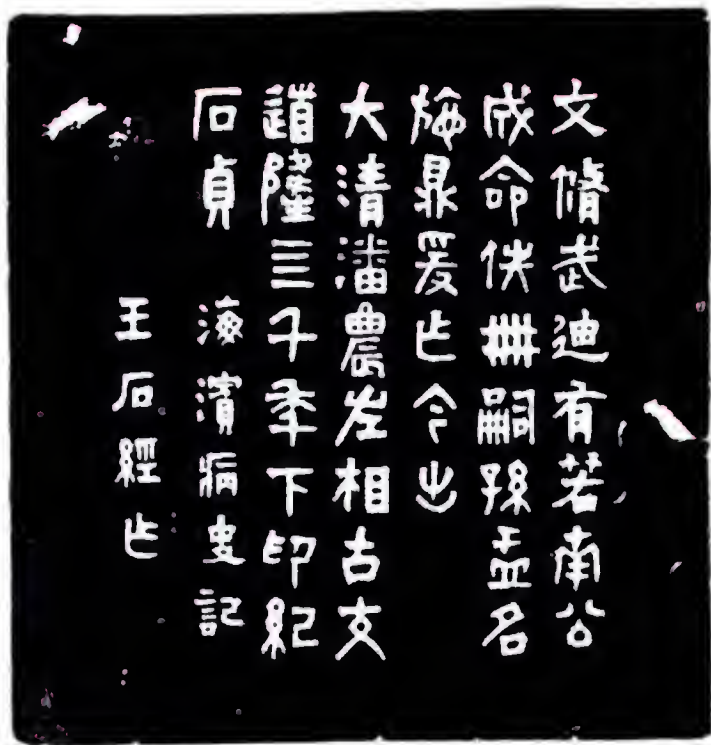 文脩武迪有若南公
成命佚冊嗣孫盂名
鼎爰乍今出
大清潘農左相古文
道隆三千年下印紀
石貞 海濱病史記
王石經乍